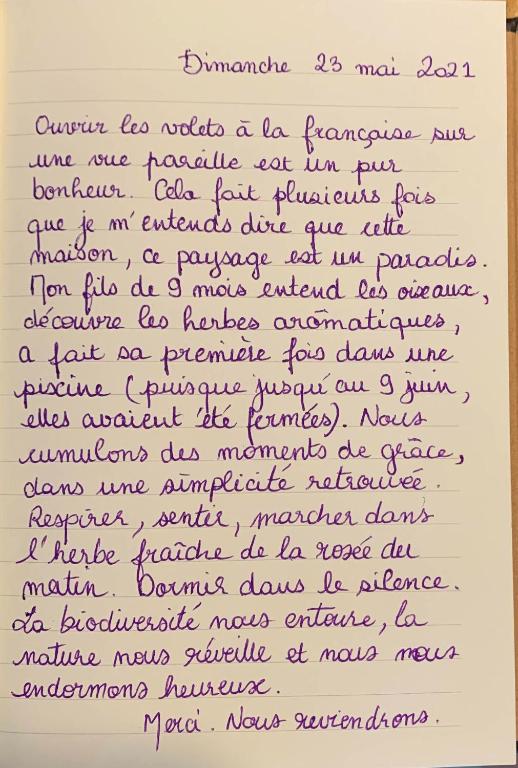 Dimanche 23 mai 2021
Ouvrir les volets à la française sur
une vue pareille est un pur
bonheur. Cela fait plusieurs fois
que je m'entends dire que cette
maison, ce paysage est un paradis.
Mon fils de 9 mois entend les oiseaux,
découvre les herbes aromatiques,
a fait sa première fois dans une
piscine (puisque jusqu'au 9 juin,
elles avaient été fermées). Nous
cumulons des moments de grâce,
dans une simplicité retrouvée.
Respirer, sentir, marcher dans
l'herbe fraîche de la rosée du
matin. Dormir dans le silence.
La biodiversité nous entoure, la
nature nous réveille et nous nous
endormons heureux.
Merci. Nous reviendrons.